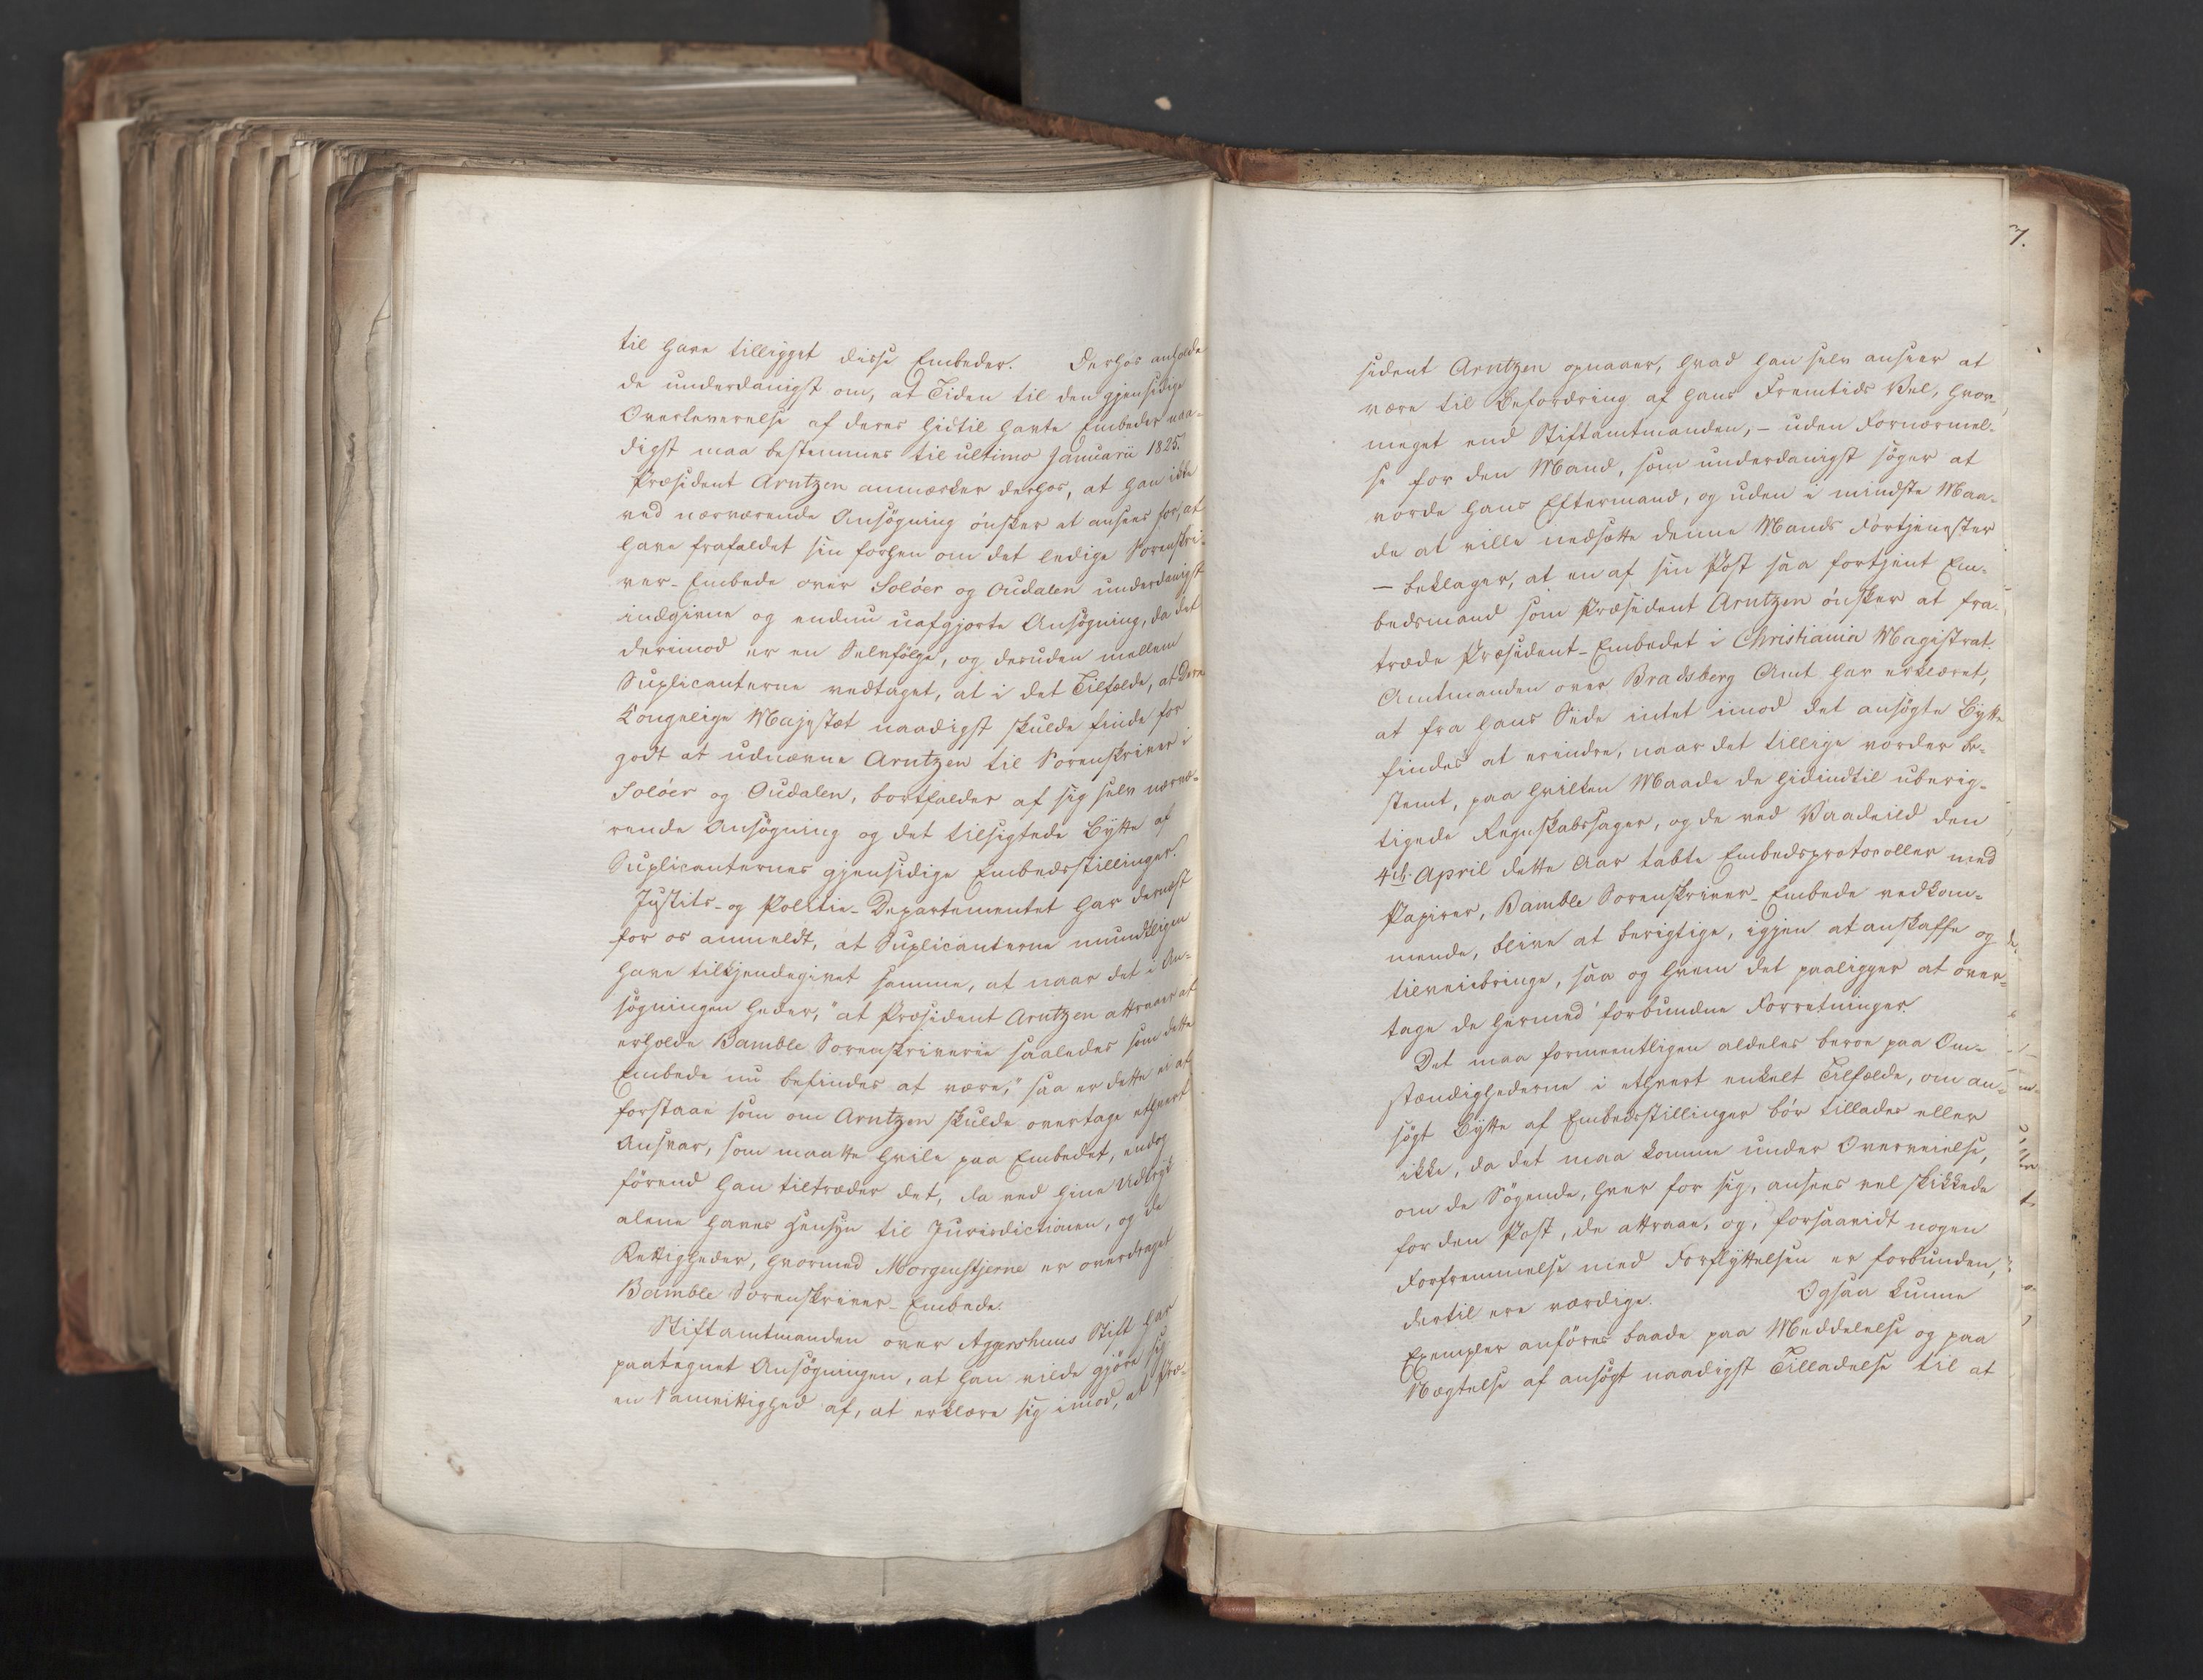 til have tilligget disse Embeder. Derhos anholde
de underdanigst om, at Tiden til den gjensidige
Overleverelse af deres hidtil havte Embeder naa-
digst maa bestemmes til ultimo Januarii 1825.
Præsident Arntzen anmærker derhos, at han ikke
ved nærværende Ansøgning ønsker at ansees for, at
have frafaldet sin forhen om det ledige Sorenskri-
ver-Embede over Soløer og Oudalen underdanigst
indgivne og endnu uafgjorte Ansøgning, da det
derimod er en Selvfølge, og desuden mellem
Suplicanterne vedtaget, at i det Tilfælde, at Deres
Kongelige Majestæt naadigst skulde finde for
godt at udnævne Arntzen til Sorenskriver i
Soløer og Oudalen, bortfalder af sig selv nærvæ-
rende Ansøgning og det tilsigtede Bytte af
Suplicanternes gjensidige Embedsstillinger.
Justits- og Politie-Departementet har dernæst
for os anmeldt, at Suplicanterne mundtligen
have tilkjendegivet samme, at naar det i An-
søgningen heder, "at Præsident Arntzen attraaer at
erholde Bamble Sorenskriverie saaledes som dette
Embede nu befindes at være," saa er dette ei at
forstaae som om Arntzen skulde overtage ethvert
Ansvar, som maatte hvile paa Embedet, endog
førend han tiltræder det, da ved hine Udtryk
alene haves Hensyn til Jurisdictionen, og de
Rettigheder, hvormed Morgenstjerne er overdraget
Bamble Sorenskriver-Embede.
Stiftamtmanden over Aggershuus Stift har
paategnet Ansøgningen, at han vilde gjøre sig
en Samvittighed af, at erklære sig imod, at Præ-
7.
sident Arntzen opnaaer, hvad han selv anseer at
være til Befordring af hans Fremtids Vel, hvor-
meget end Stiftamtmanden, – uden Fornærmel-
se for den Mand, som underdanigst søger at
vorde hans Eftermand, og uden i mindste Maa-
de at ville nedsætte denne Mands Fortjenester
– beklager, at en af sin Post saa fortjent Em-
bedsmand som Præsident Arntzen ønsker at fra-
træde Præsident-Embedet i Christiania Magistrat.
Amtmanden over Bradsberg Amt har erklæret,
at fra hans Side intet imod det ansøgte Bytte
findes at erindre, naar det tillige vorder be-
stemt, paa hvilken Maade de hidindtil uberig-
tigede Regnskabssager, og de ved Vaadeild den
4de April dette Aar tabte Embedsprotocoller med
Papirer, Bamble Sorenskriver-Embede vedkom-
mende, blive at berigtige, igjen at anskaffe og
tilveiebringe, saa og hvem det paaligger at over-
tage de hermed forbundne Forretninger.
Det maa formeentligen aldeles beroe paa Om-
stændighederne i ethvert enkelt Tilfælde, om an-
søgt Bytte af Embedsstillinger bør tillades eller
ikke, da det maa komme under Overveielse,
om de Søgende, hver for sig, ansees vel skikkede
for den Post, de attraae, og, forsaavidt nogen
Forfremmelse med Forflyttelsen er forbunden,
dertil ere værdige. Ogsaa kunne
Exempler anføres baade paa Meddelelse og paa
Nægtelse af ansøgt naadigst Tilladelse til at